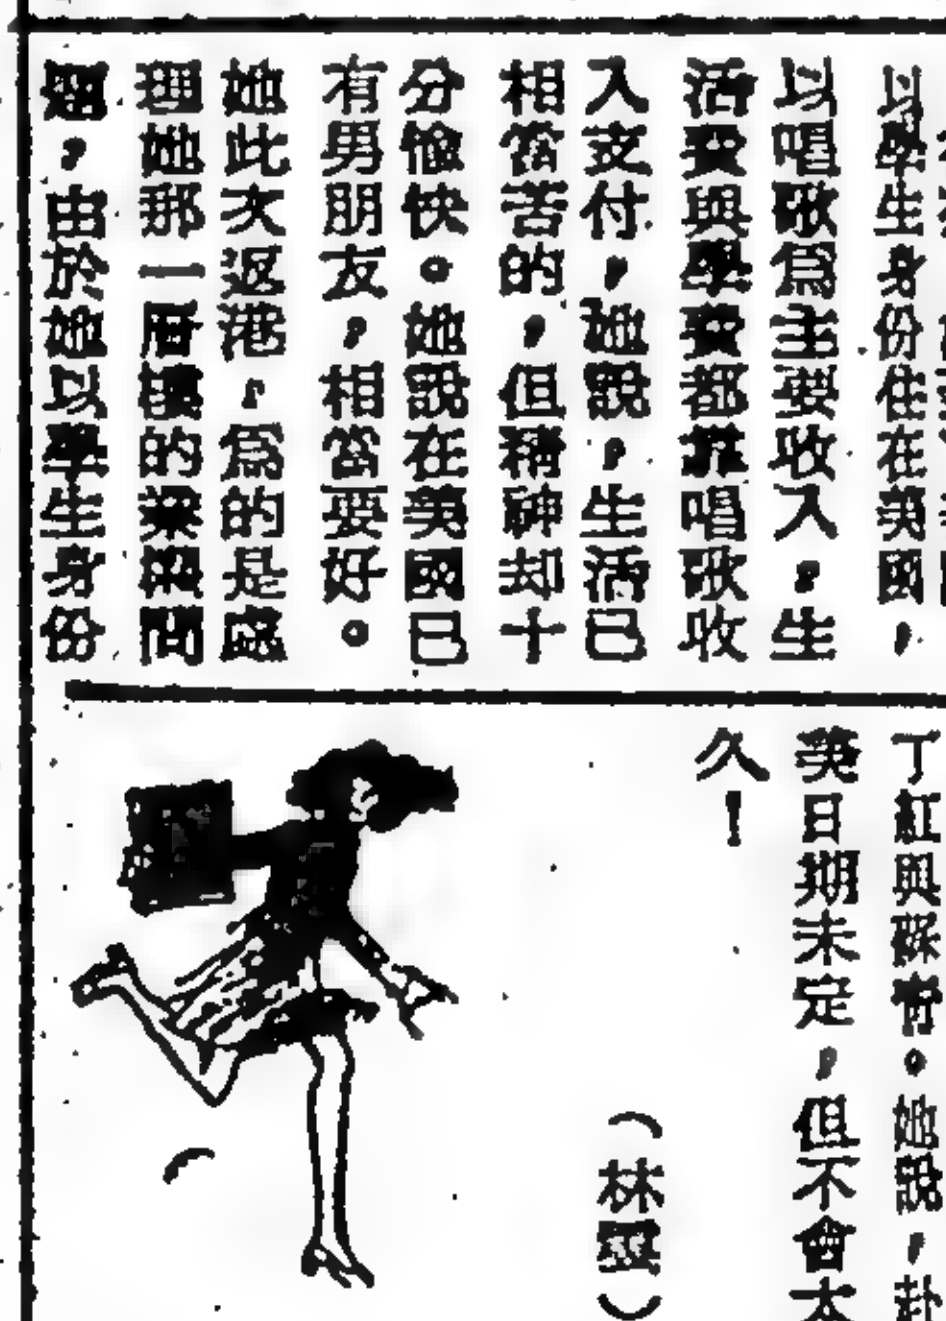 以學生身份住在美國，
以唱歌爲主要收入，生
活費與學費都靠唱歌收
入支付，她說，生活已
相當苦的，但精神却十
分愉快。她說在美國已
有男朋友，相當要好。
她此次返港，爲的是處
理她那一層樓的業權問
題，由於她以學生身份
丁紅與蘇青。她說，赴
美日期未定，但不會太
久！
（林靈）